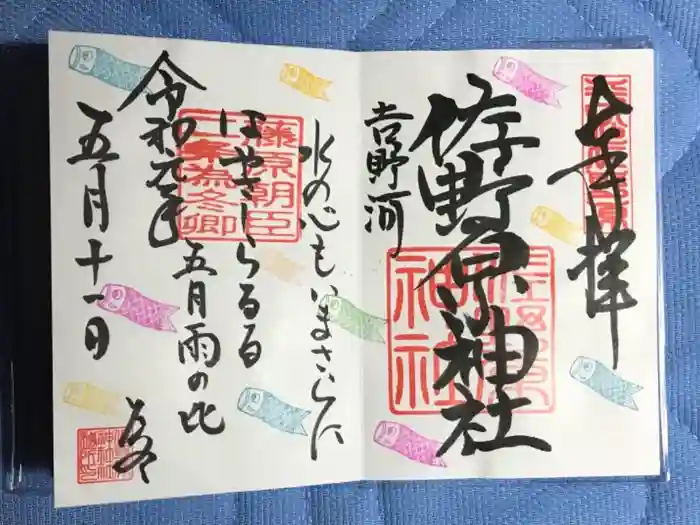 奉拝
佐野原神社
佐野原神社
吉野河
水の心もいまさらに
はやさしらるる
五月雨の比
為冬
藤原朝臣
二条為冬卿
令和元年
五月十一日